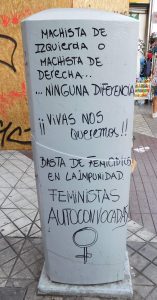 MACHISTA DE
IZQUIERDA O
MACHISTA DE
DERECHA...
...NINGUNA DIFERENCIA
¡¡VIVAS NOS
QUEREMOS!!
BASTA DE FEMICIDIOS
EN LA IMPUNIDAD
FEMINISTAS
AUTOCONVOCADAS